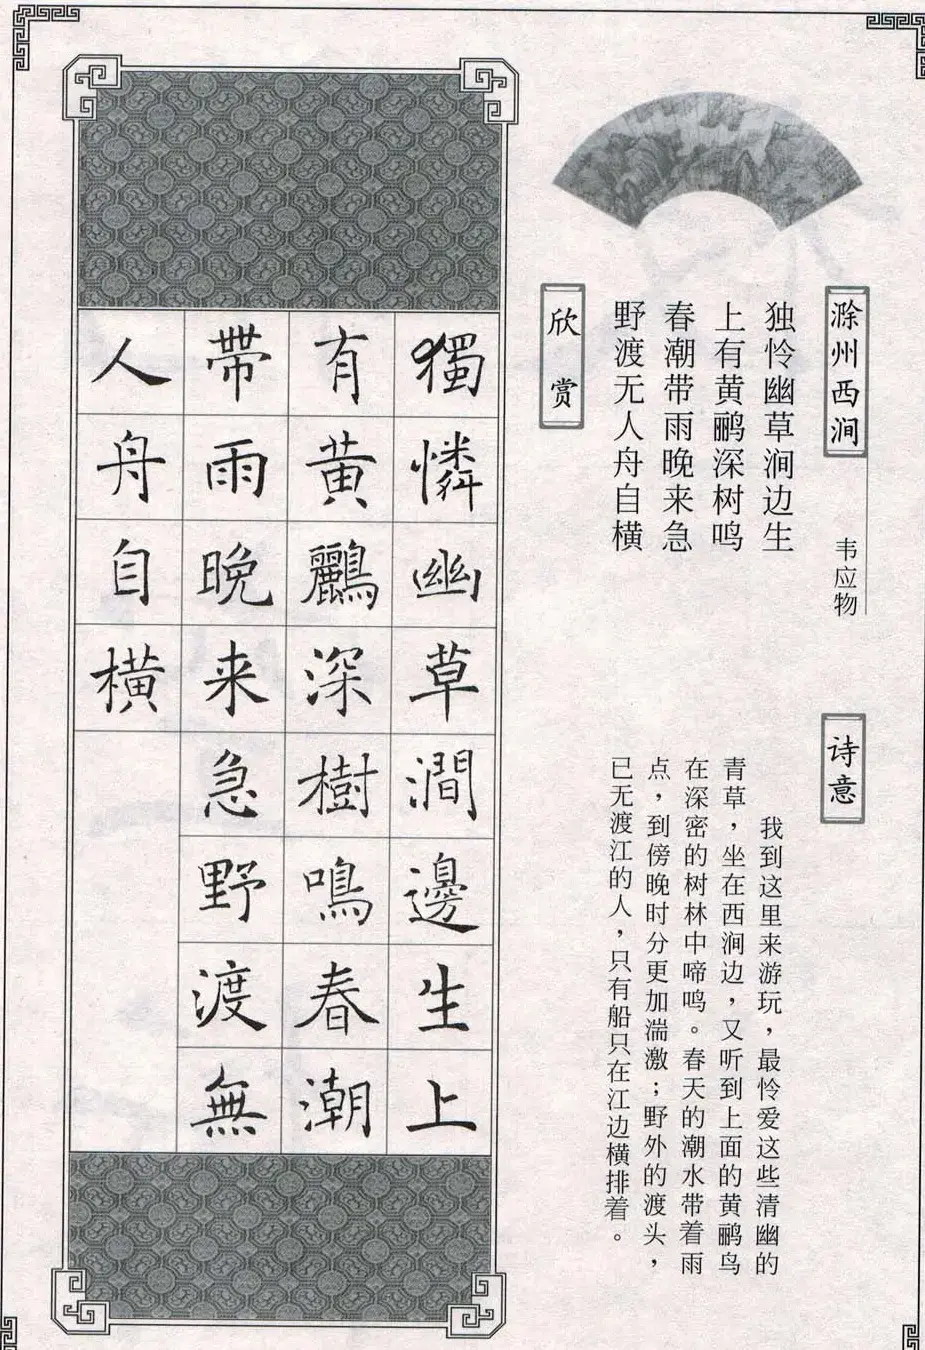 滁州西涧
韦应物
独怜幽草涧边生
上有黄鹂深树鸣
春潮带雨晚来急
野渡无人舟自横
诗意
我到这里来游玩，最怜爱这些清幽的
青草，坐在西涧边，又听到上面的黄鹂鸟
在深密的树林中啼鸣。春天的潮水带着雨
点，到傍晚时分更加湍激；野外的渡头，
已无渡江的人，只有船只在江边横排着。
欣赏
獨憐幽草澗邊生上
有黄鸝深樹鳴春潮
帶雨晚来急野渡無
人舟自横